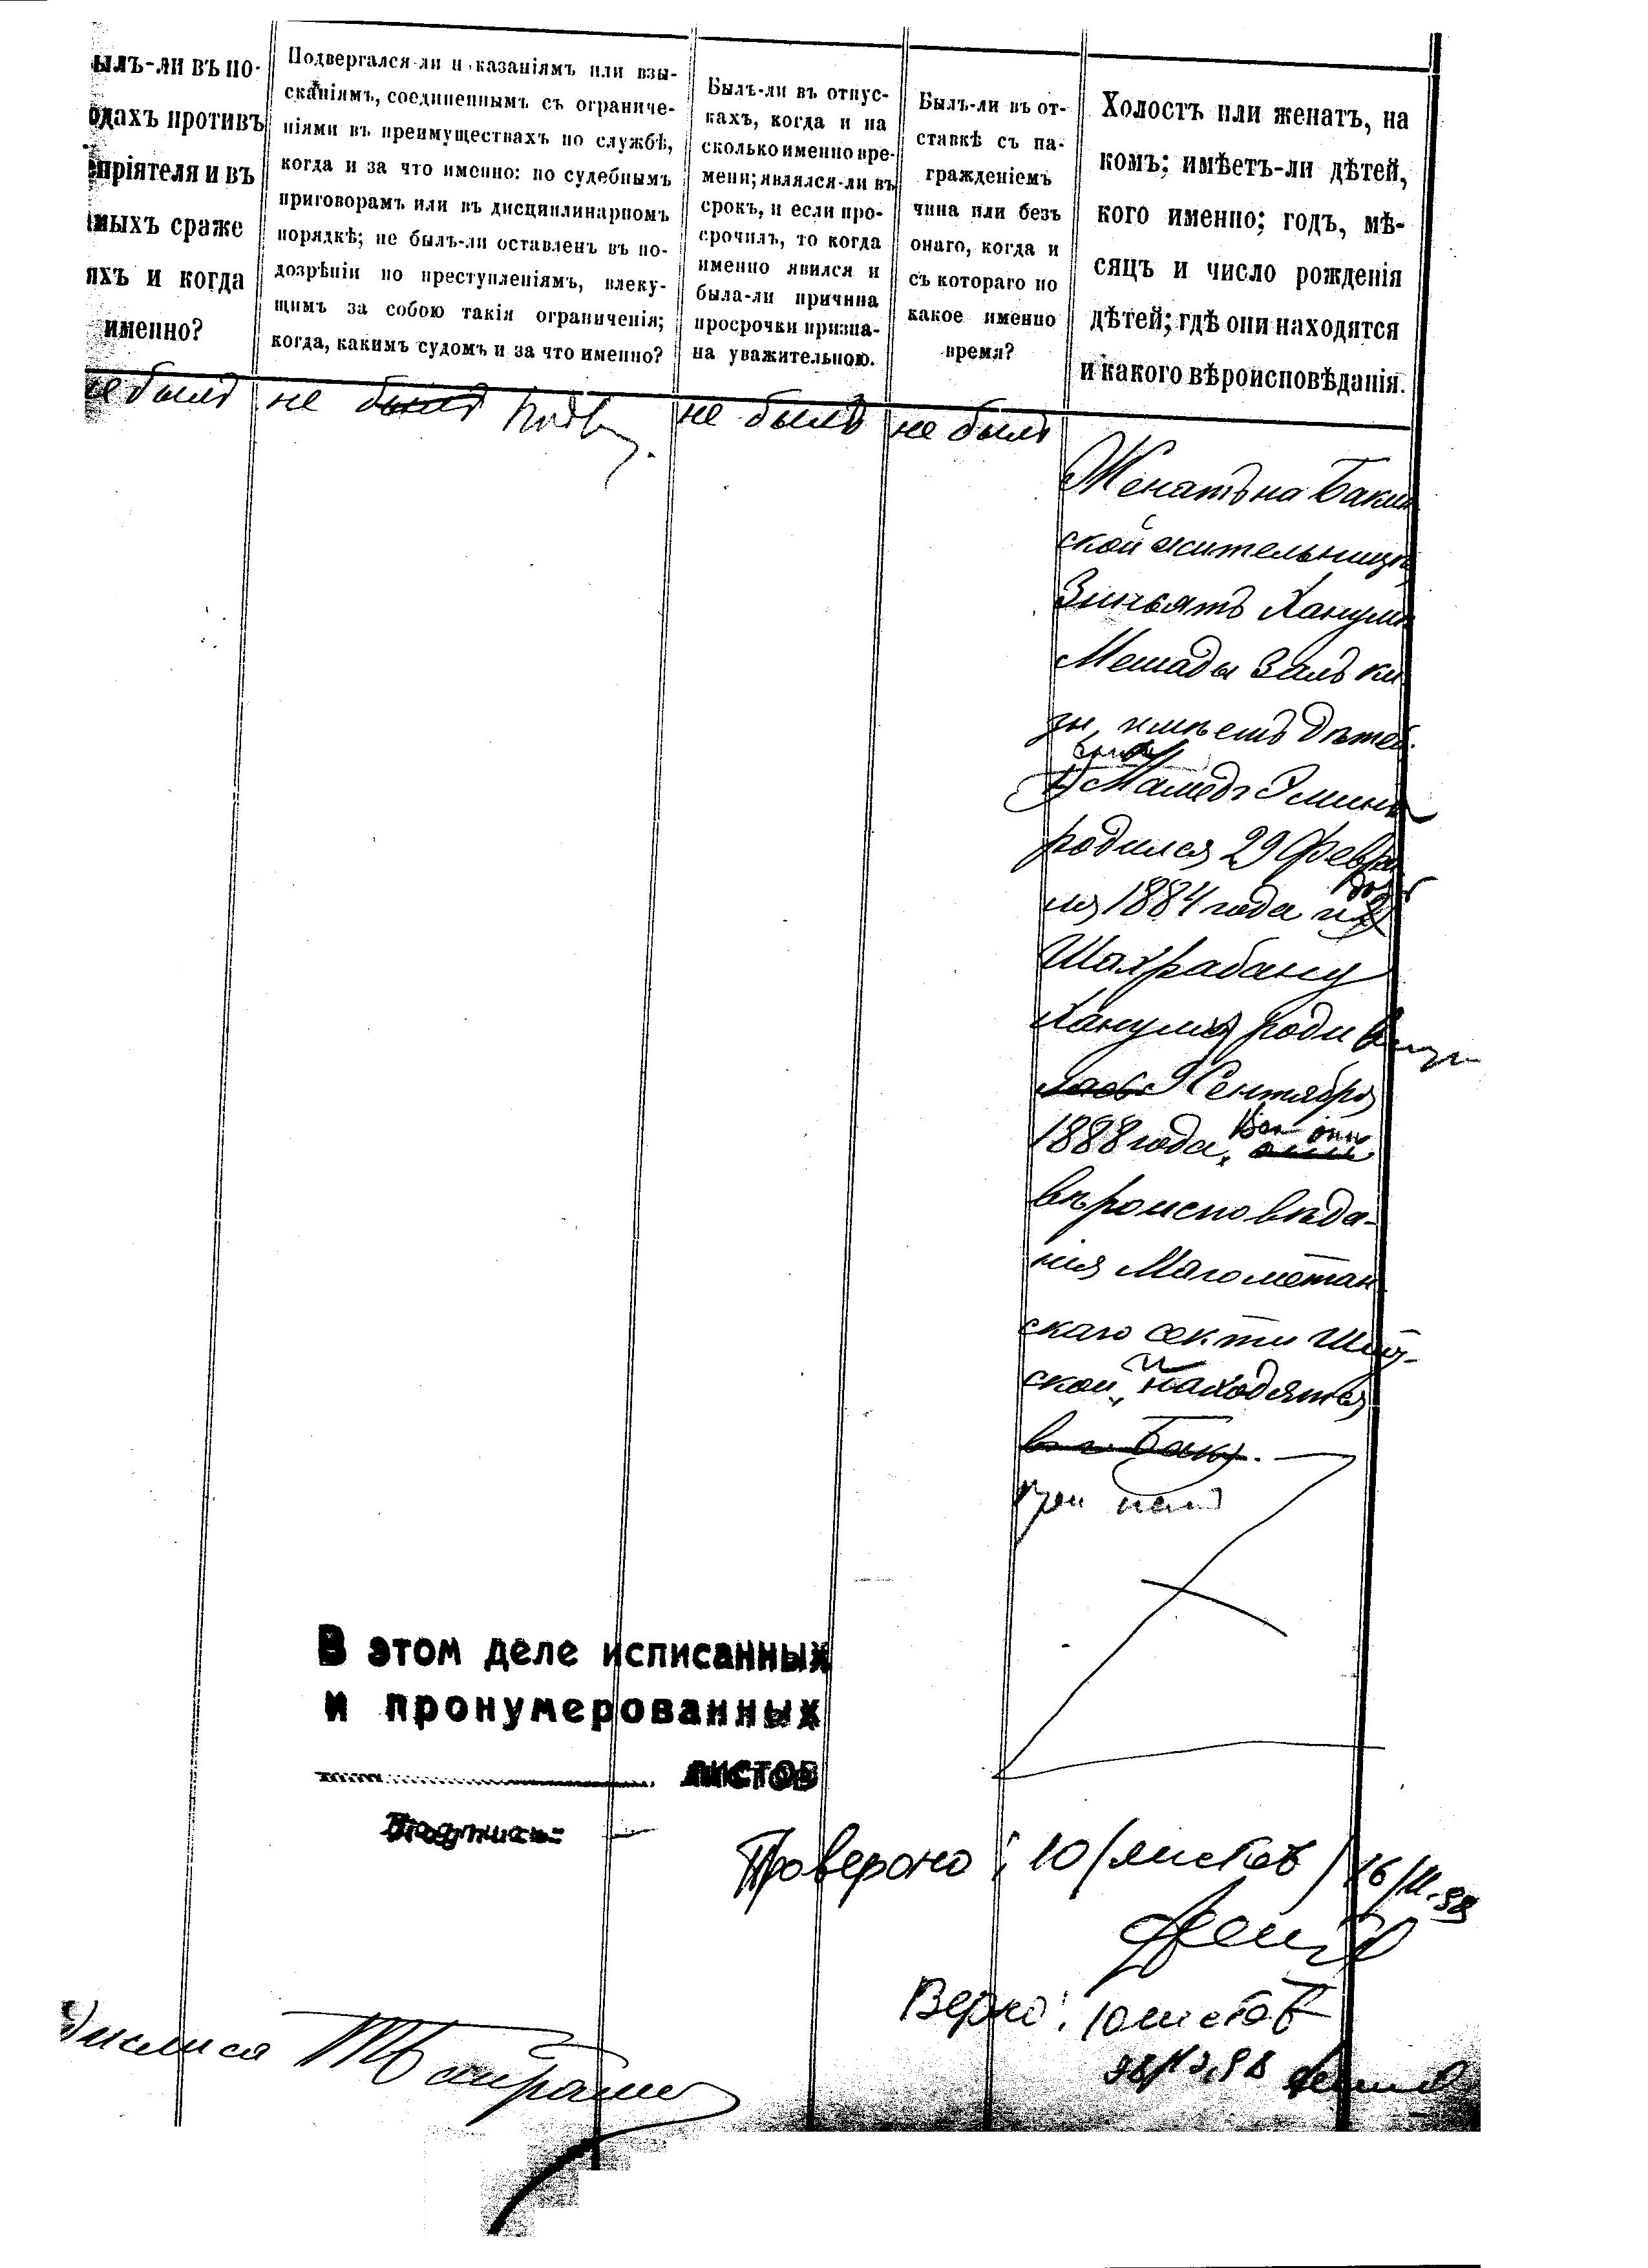 ылъ-ли въ по-
одахъ противъ
епріятеля и въ
ныхъ сраже
яхъ и когда
именно?
Подвергался-ли наказаніямъ или взы-
сканіямъ, соединеннымъ съ ограниче-
ніями въ преимуществахъ по службѣ,
когда и за что именно: по судебнымъ
приговорамъ или въ дисциплинарномъ
порядкѣ; не былъ-ли оставленъ въ по-
дозрѣніи по преступленіямъ, влеку-
щимъ за собою такія ограниченія;
когда, какимъ судомъ и за что именно?
Былъ-ли въ отпус-
кахъ, когда и на
сколько именно вре-
мени; являлся-ли въ
срокъ, и если про-
срочилъ, то когда
именно явился и
была-ли причина
просрочки призна-
на уважительною.
Былъ-ли въ от-
ставкѣ съ на-
гражденіемъ
чина или безъ
онаго, когда и
съ котораго по
какое именно
время?
Холостъ или женатъ, на
комъ; имѣетъ-ли дѣтей,
кого именно; годъ, мѣ-
сяцъ и число рожденія
дѣтей; гдѣ они находятся
и какого вѣроисповѣданія.
не былъ
не былъ подв.
не былъ
не былъ
Женатъ на Бакин
ской жительницѣ
Зиньятъ Ханумъ
Мешади Залъ ки
зы, имѣетъ дѣтей:
сына
1) Мамедъ Эмина
родился 29 Февра
ля 1884 года и
дочь
Шахрабану
Ханумъ роди
лась 9 Сентября
1888 года. они
Вѣ они
вѣроисповѣда-
нія Магометан
скаго секти Шіит-
ской, и находятся
въ г. Баку.
при немъ
В этом деле исписанных
и пронумерованных
листов
Подпись:
Проверено: 10 /листов/ 16/II.98
Верно: 10 листов